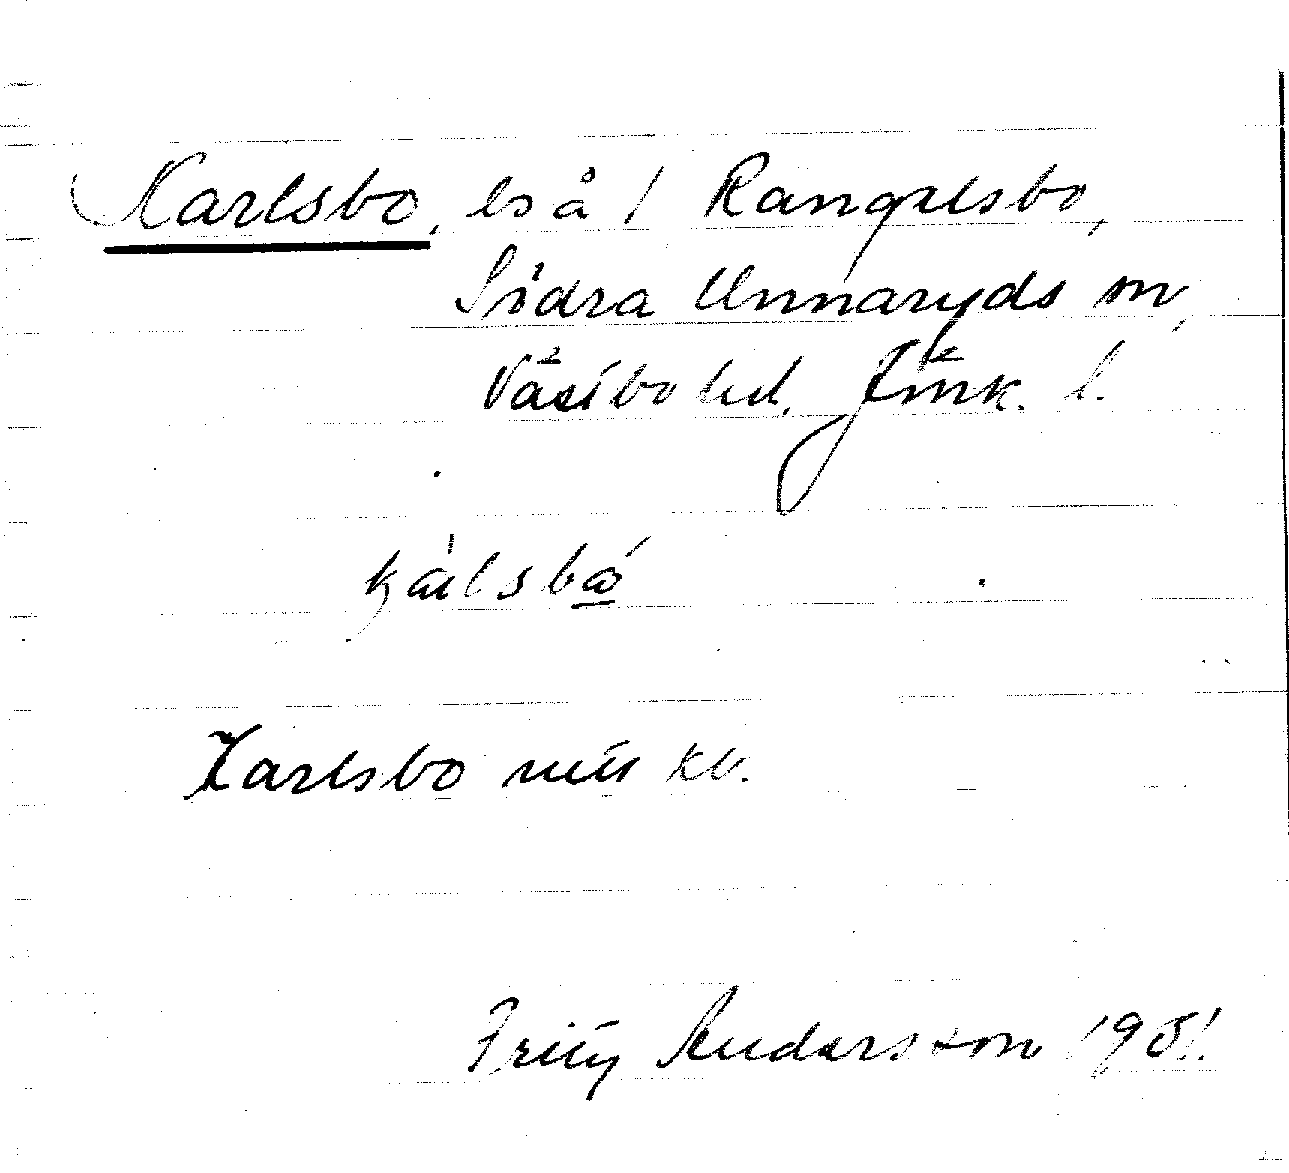 Karlsbo, ls å / Rangelsbo,
Södra Unnaryds sn,
Västbo hd. Jönk. l.
Karlsbo mtl kb.
Fritz Andersson 1951.